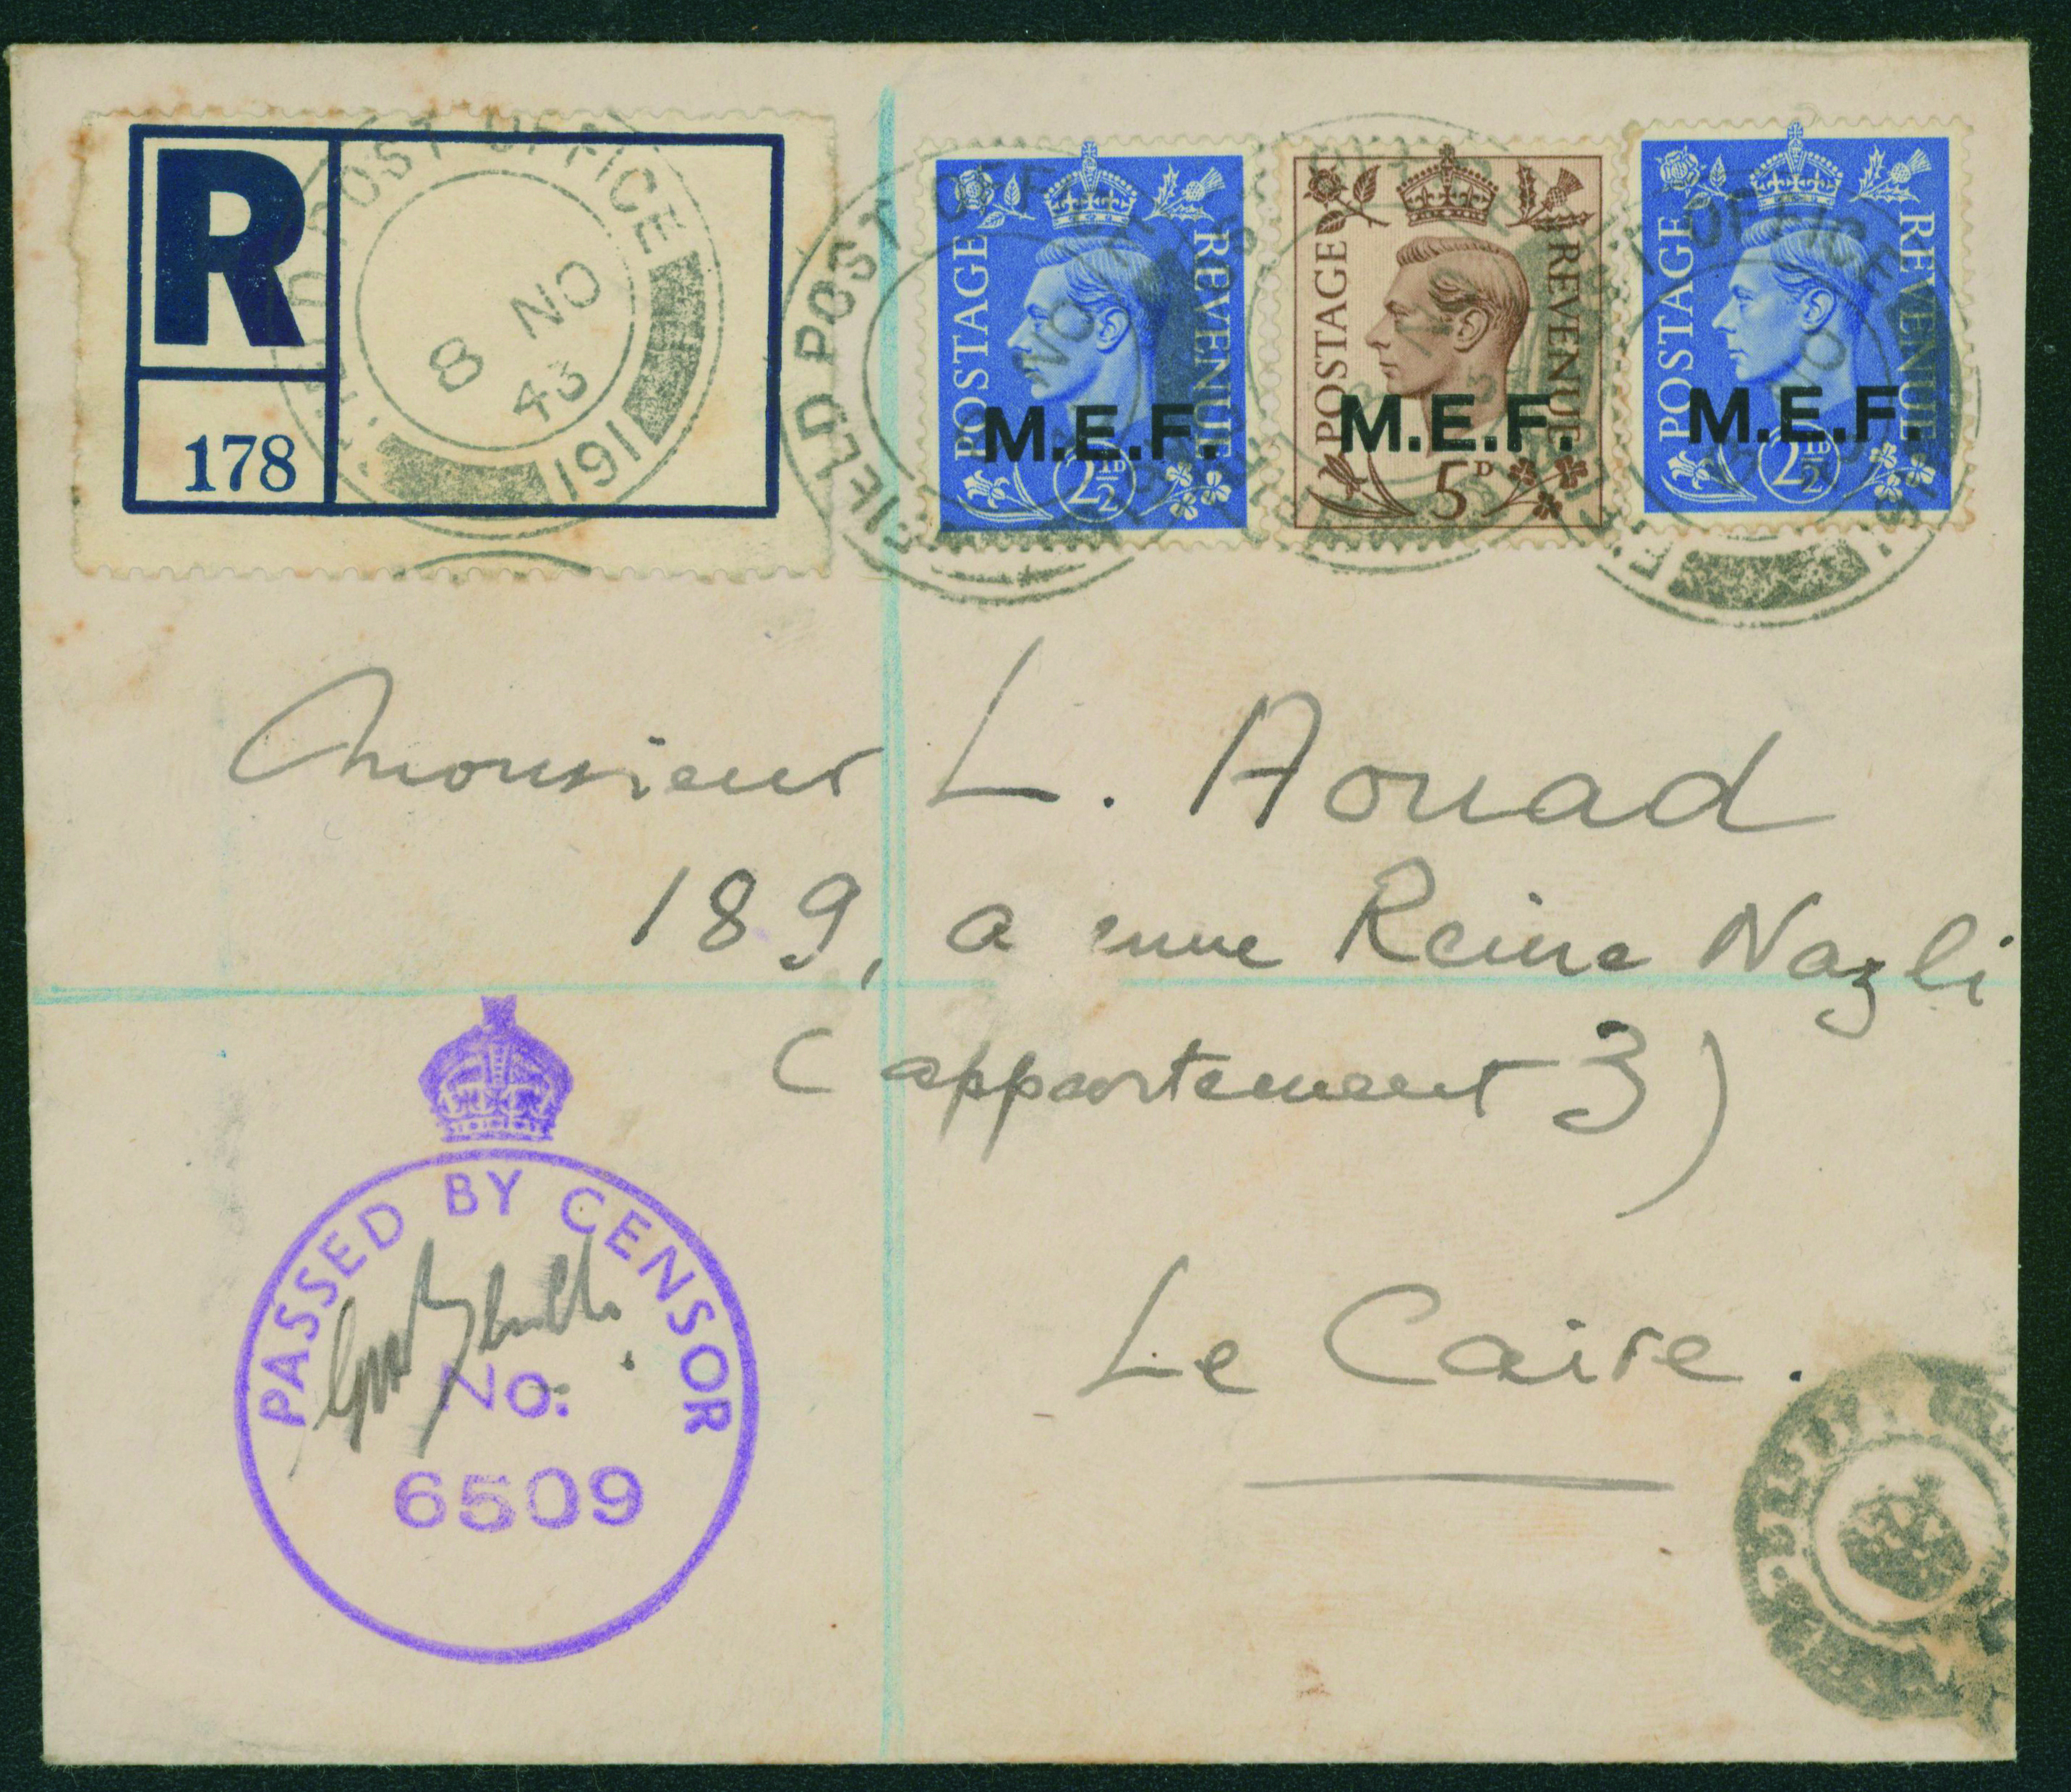 R
178
FIELD POST OFFICE
8 NO
43
191
FIELD POST OFFICE
NO
POSTAGE REVENUE
M.E.F.
2½D
POSTAGE REVENUE
M.E.F.
5D
POSTAGE REVENUE
M.E.F.
2½D
OFFICE
NO
Monsieur L. Aouad
189, a enue Reine Nazli
(appartement 3)
Le Caire.
PASSED BY CENSOR
No:
6509